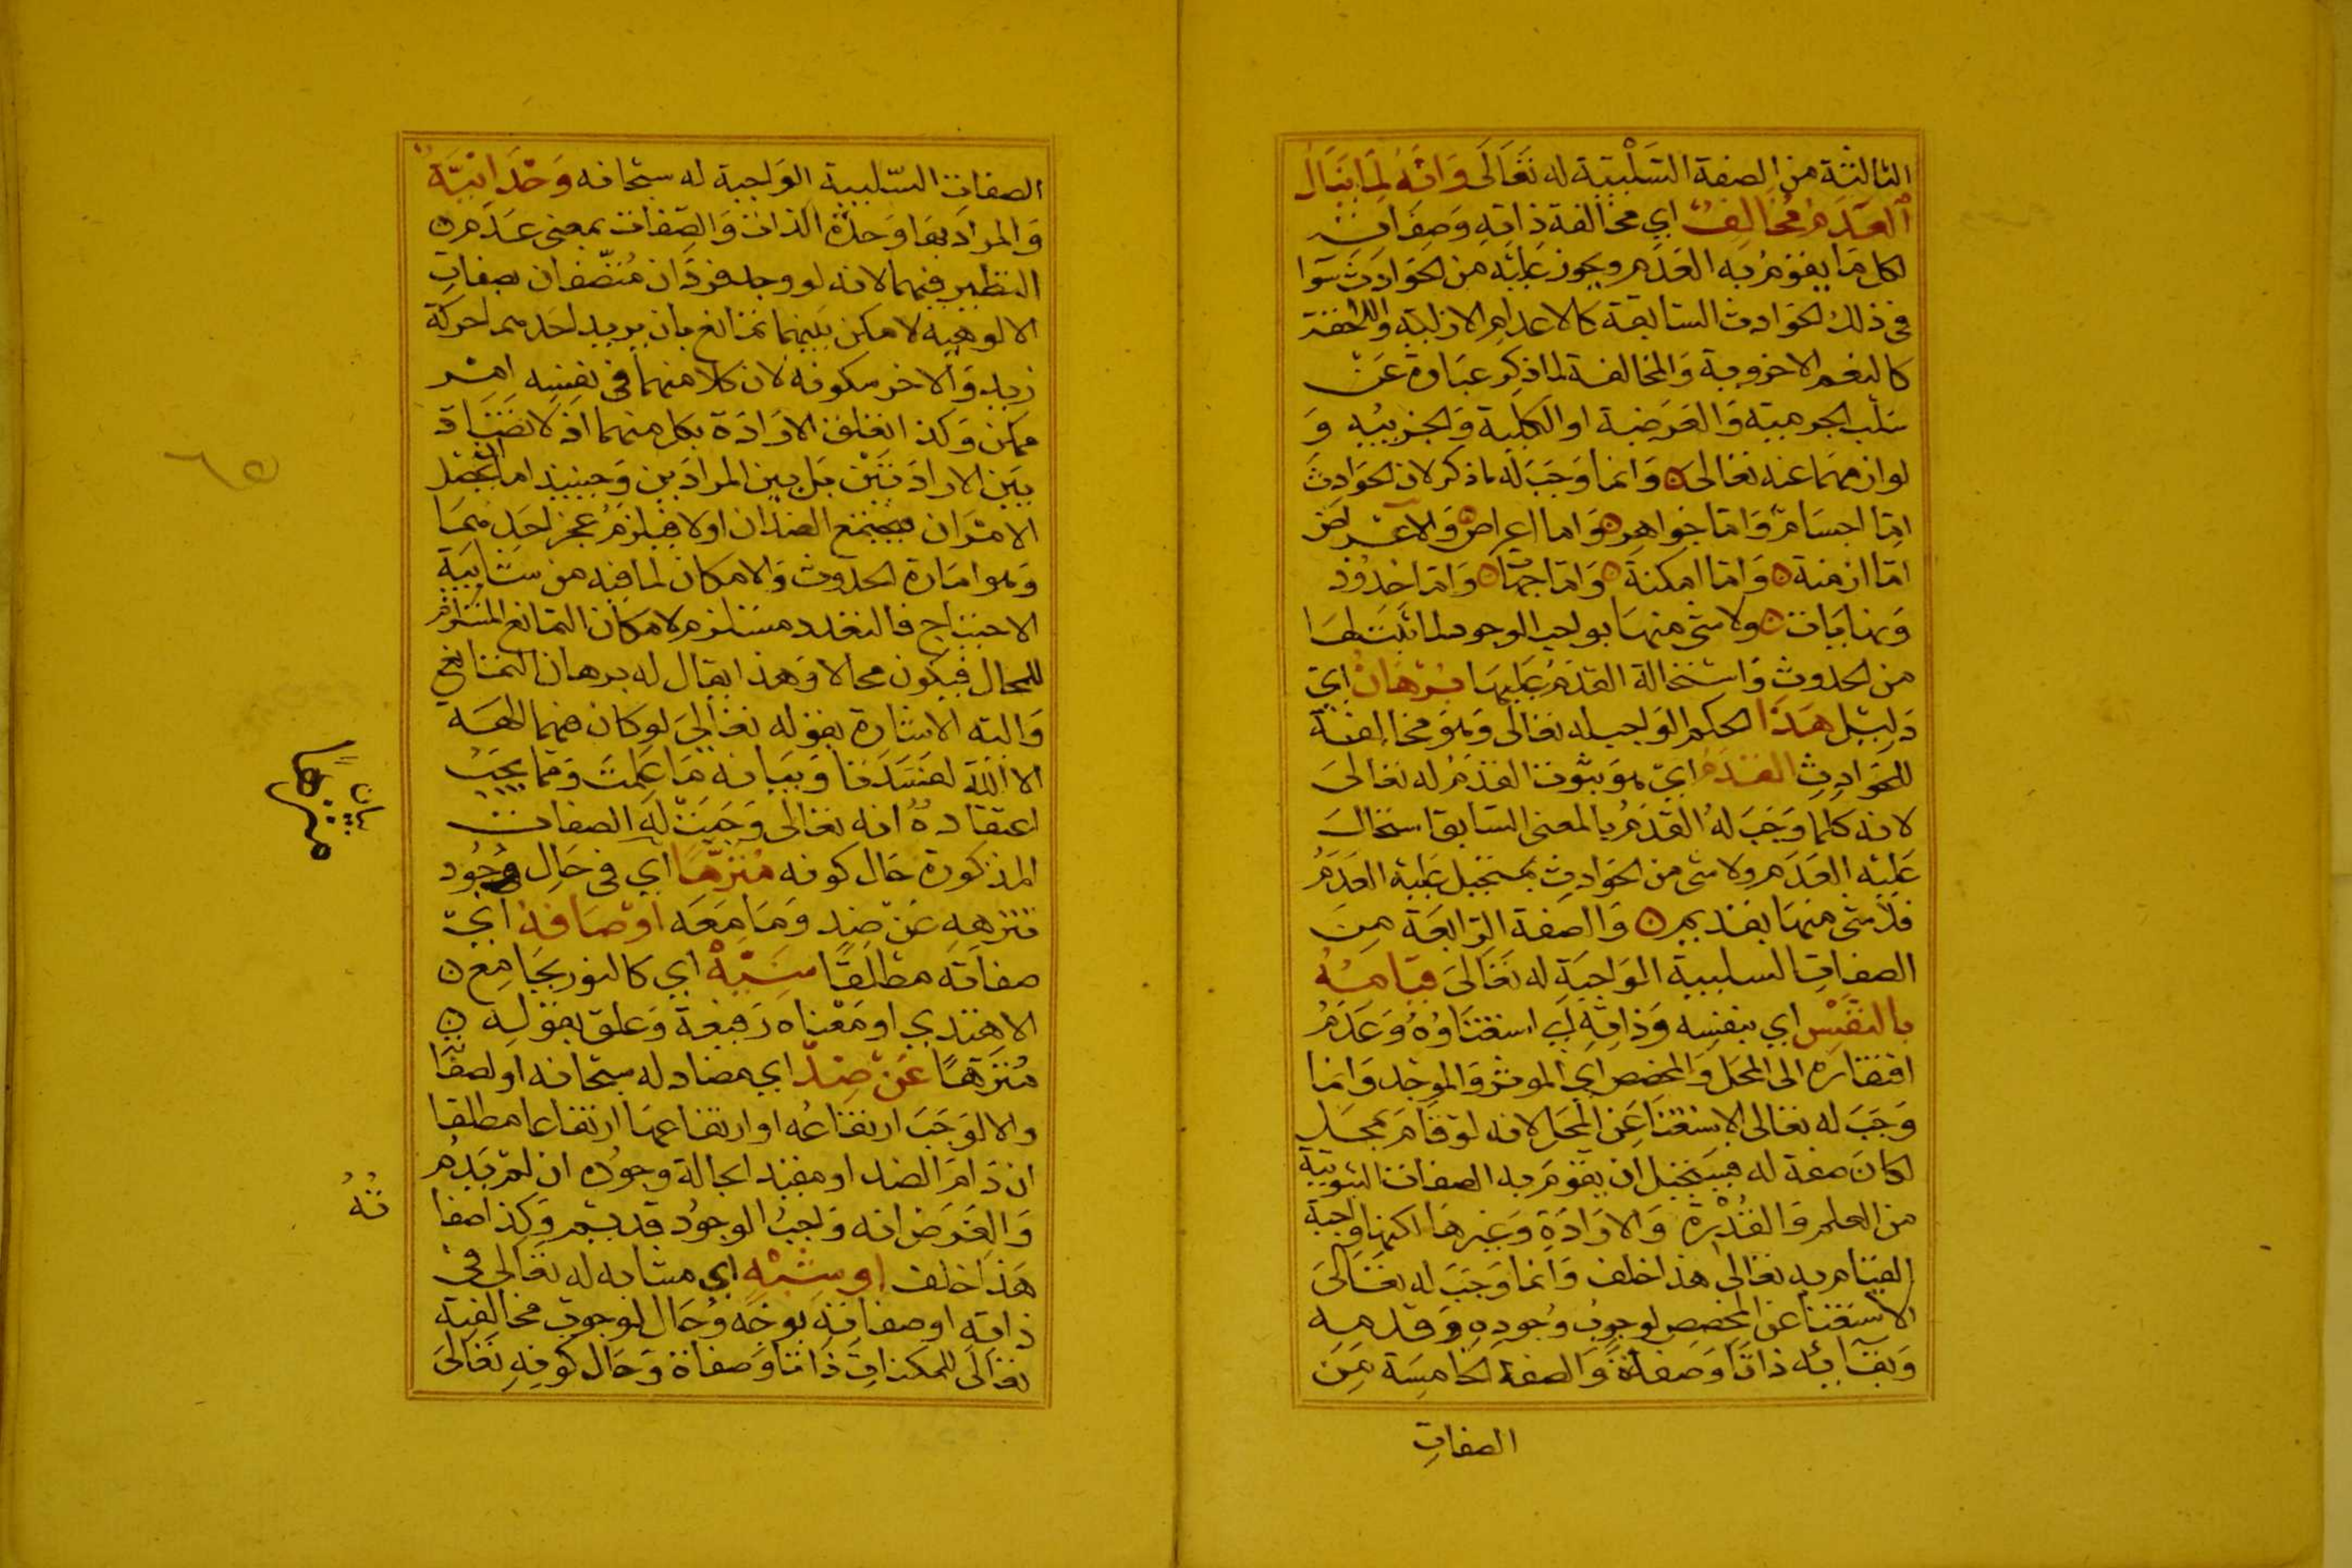 الثالثة من الصفة السلبية له تعالى وانه لما ينال
العدم مخالف اي مخالفة ذاته وصفاته
لكل ما يقوم به العدم ويجوز عليه من الحوادث سوا
في ذلك الحوادث السابقة كالاعدام الازلية واللاحقة
كالنعم الاخروية والمخالفة لما ذكر عبارة عن
سلب الجرمية والعرضية او الكلية والجزئية و
لوازمهما عنه تعالى وانما وجب له ما ذكر لان الحوادث
اما اجسام واما جواهر واما اعراض والاعراض
اما ازمنة واما امكنة واما جهات واما حدود
ونهايات ولا شي منها بواجب الوجود لما ثبت لها
من الحدوث واستحالة القدم عليها برهان اي
دليل هذا الحكم الواجب له تعالى وهو مخالفته
للحوادث القدم اي هو ثبوت القدم له تعالى
لانه كلما وجب له القدم بالمعنى السابق استحال
عليه العدم ولا شي من الحوادث بمستحيل عليه العدم
فلا شي منها بقديم والصفة الرابعة من
الصفات السلبية الواجبة له تعالى قيامه
بالنفس اي بنفسه وذاته اي استغناوه وعدم
افتقاره الى المحل والمخصص اي الموثر والموجد وانما
وجب له تعالى الاستغنا عن المحل لانه لو قام بمحل
لكان صفة له فيستحيل ان يقوم به الصفات الثبوتية
من العلم والقدرة والارادة وغيرها لكنها واجبة
القيام به تعالى هذا خلف وانما وجب له تعالى
الاستغنا عن المخصص لوجوب وجوده وقدمه
وبقآئه ذاتا وصفاة والصفة الخامسة من
الصفات
الصفات السلبية الواجبة له سبحانه وحدانية
والمراد بها وحدة الذات والصفات بمعنى عدم
النظير فيهما لانه لو وجد فردان متصفان بصفات
الالوهية لامكن بينهما تمانع بان يريد احدهما حركة
زيد والاخر سكونه لان كلا منهما في نفسه امر
ممكن وكذا تعلق الارادة بكل منهما اذ لا تضاد
بين الارادتين بل بين المرادين وحينئذ اما ان يحصل
الامران فيجتمع الضدان اولا فيلزم عجز احدهما
وهو امارة الحدوث والامكان لما فيه من شايبة
الاحتياج فالتعدد مستلزم لامكان التمانع المستلزم
للمحال فيكون محالا وهذا يقال له برهان التمانع
واليه الاشارة بقوله تعالى لو كان فيهما الهة
الا الله لفسدتا وبيانه ما علمت ومما يجب
اعتقاده انه تعالى وجبت له الصفات
المذكورة حال كونه منزها اي في حال وجود
تنزهه عن ضد وما معه اوصافه اي
صفاته مطلقا سنية اي كالنور بجامع
الاهتدي او معناه رفيعة وعلق بقوله
منزها عن ضد اي مضاد له سبحانه او لصفا
والا لوجب ارتفاعه او ارتفاعها ارتفاعا مطلقا
ان دام الضد او مقيد ابحالة وجوده ان لم يدم
والفرض انه واجب الوجود قديم وكذا صفا
هذا خلف او شبه اي مشابه له تعالى في
ذاته او صفاته بوجه وحال لوجوب مخالفته
تعالى للممكنات ذاتا وصفاة وحال كونه تعالى
٦٥
منزها
ته